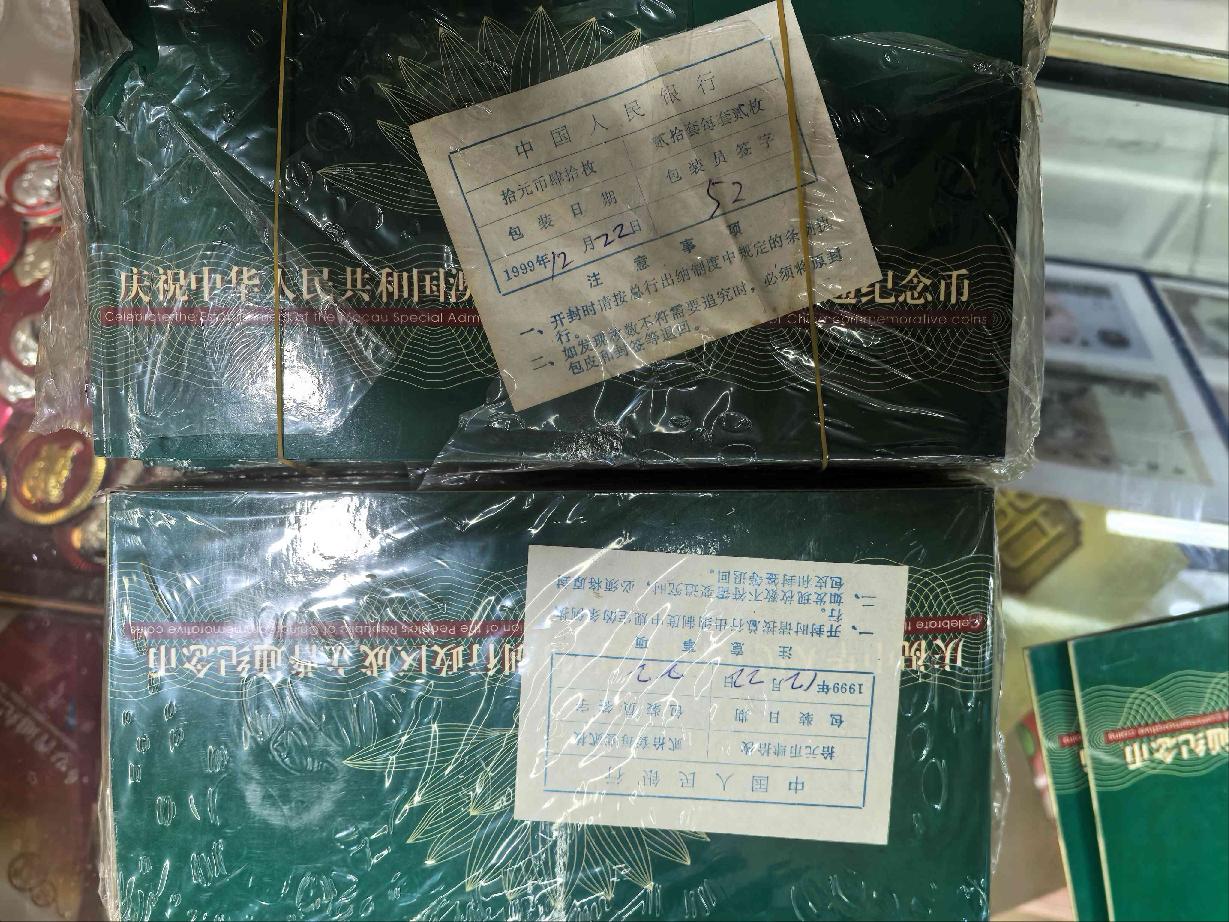 中国人民银行
拾元币肆拾枚 贰拾套每套贰枚
包装日期 包装员签字
1999年12月22日 52
注意事项
一、开封时请按总行出纳制度中规定的条例执
行。
二、如发现枚数不符需要追究时，必须将原封
包皮和封签等退回。
庆祝中华人民共和国澳 通纪念币
Celebrate the Establishment of the Macau Special Adm of China commemorative coins
中国人民银行
拾元币肆拾枚 贰拾套每套贰枚
包装日期 包装员签字
1999年12月22日
注意事项
一、开封时请按总行出纳制度中规定的条例执
行。
二、如发现枚数不符需要追究时，必须将原封
包皮和封签等退回。
庆祝中华人 别行政区成立普通纪念币
Celebrate t on of the People's Republic of China commemorative coins
通纪念币
commemorative coins